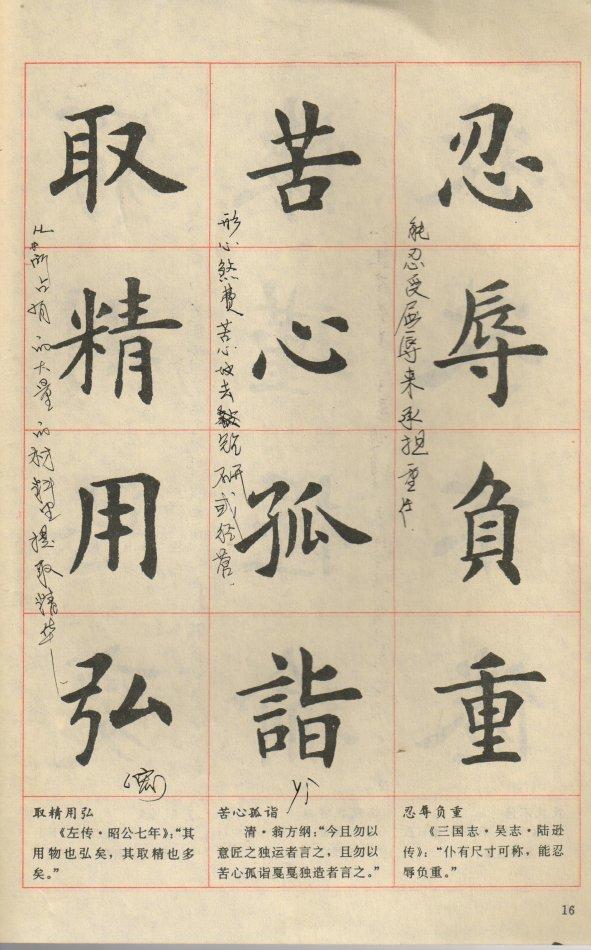 忍辱负重
能忍受屈辱来承担重任.
苦心孤詣
费苦心
去
钻研或经营.
取精用弘
从所占有的大量的材料里提取精华
忍辱负重
《三国志·吴志·陆逊
传》：“仆有尺寸可称，能忍
辱负重。”
苦心孤诣
清·翁方纲：“今且勿以
意匠之独运者言之，且勿以
苦心孤诣戛戛独造者言之。”
取精用弘
《左传·昭公七年》：“其
用物也弘矣，其取精也多
矣。”
16